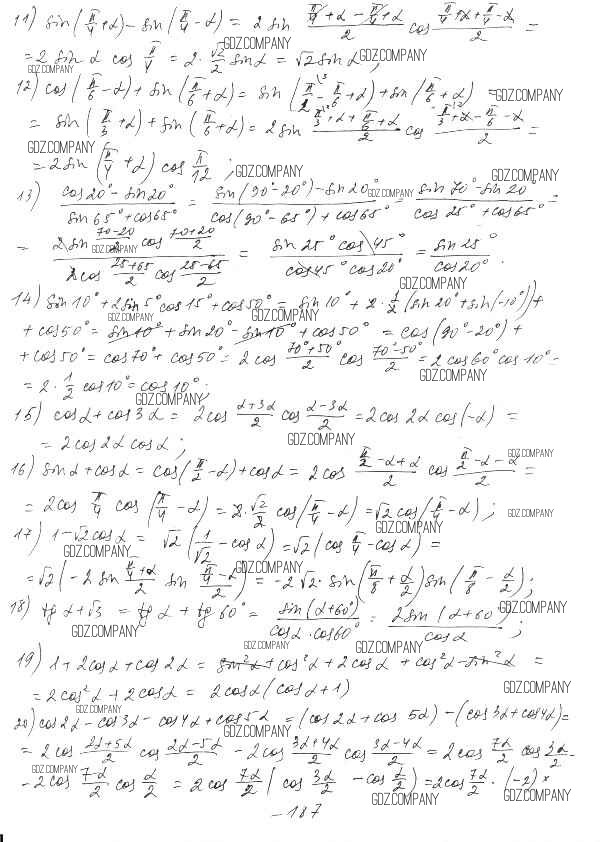 11) sin(π/4+α)−sin(π/4−α) = 2 sin (π/4+α−π/4+α)/2 cos (π/4+α+π/4−α)/2 =
GDZ.COMPANY GDZ.COMPANY
= 2 sin α cos π/4 = 2·√2/2 sin α = √2 sin α;
GDZ.COMPANY GDZ.COMPANY
12) cos(π/6−α)+sin(π/6+α) = sin(π/2−π/6+α)+sin(π/6+α) =
GDZ.COMPANY
= sin(π/3+α)+sin(π/6+α) = 2 sin (π/3+α+π/6+α)/2 cos (π/3+α−π/6−α)/2 =
GDZ.COMPANY GDZ.COMPANY
= 2 sin(π/4+α) cos π/12;
GDZ.COMPANY GDZ.COMPANY
13) (cos20°−sin20°)/(sin65°+cos65°) = (sin(90°−20°)−sin20°)/(cos(90°−65°)+cos65°) = (sin70°−sin20°)/(cos25°+cos65°) =
GDZ.COMPANY
= (2 sin (70−20)/2 cos (70+20)/2)/(2 cos (25+65)/2 cos (25−65)/2) = (sin25° cos45°)/(cos45° cos20°) = sin25°/cos20°.
GDZ.COMPANY GDZ.COMPANY
14) sin10°+2sin5°cos15°+cos50° = sin10°+2·1/2(sin20°+sin(−10°))+
GDZ.COMPANY GDZ.COMPANY
+cos50° = sin10°+sin20°−sin10°+cos50° = cos(90°−20°)+
+cos50° = cos70°+cos50° = 2cos (70°+50°)/2 cos (70°−50°)/2 = 2cos60°cos10° =
GDZ.COMPANY
= 2·1/2 cos10° = cos10°;
GDZ.COMPANY
15) cosα+cos3α = 2cos (α+3α)/2 cos (α−3α)/2 = 2cos2α cos(−α) =
GDZ.COMPANY
= 2cos2α cosα;
GDZ.COMPANY
16) sinα+cosα = cos(π/2−α)+cosα = 2cos (π/2−α+α)/2 cos (π/2−α−α)/2 =
GDZ.COMPANY GDZ.COMPANY
= 2cos π/4 cos(π/4−α) = 2·√2/2 cos(π/4−α) = √2cos(π/4−α);
GDZ.COMPANY GDZ.COMPANY
17) 1−√2cosα = √2(1/√2−cosα) = √2(cos π/4−cosα) =
GDZ.COMPANY
= √2(−2sin (π/4+α)/2 sin (π/4−α)/2) = −2√2·sin(π/8+α/2)sin(π/8−α/2);
GDZ.COMPANY GDZ.COMPANY
18) tgα+√3 = tgα+tg60° = sin(α+60°)/(cosα·cos60°) = 2sin(α+60°)/cosα;
GDZ.COMPANY GDZ.COMPANY
GDZ.COMPANY GDZ.COMPANY
19) 1+2cosα+cos2α = sin²α+cos²α+2cosα+cos²α−sin²α =
= 2cos²α+2cosα = 2cosα(cosα+1)
GDZ.COMPANY
20) cos2α−cos3α−cos4α+cos5α = (cos2α+cos5α)−(cos3α+cos4α) =
GDZ.COMPANY
= 2cos (2α+5α)/2 cos (2α−5α)/2 − 2cos (3α+4α)/2 cos (3α−4α)/2 = 2cos 7α/2 cos 3α/2 −
GDZ.COMPANY GDZ.COMPANY
−2cos 7α/2 cos α/2 = 2cos 7α/2 (cos 3α/2 −cos α/2) = 2cos 7α/2·(−2)×
GDZ.COMPANY GDZ.COMPANY
−187